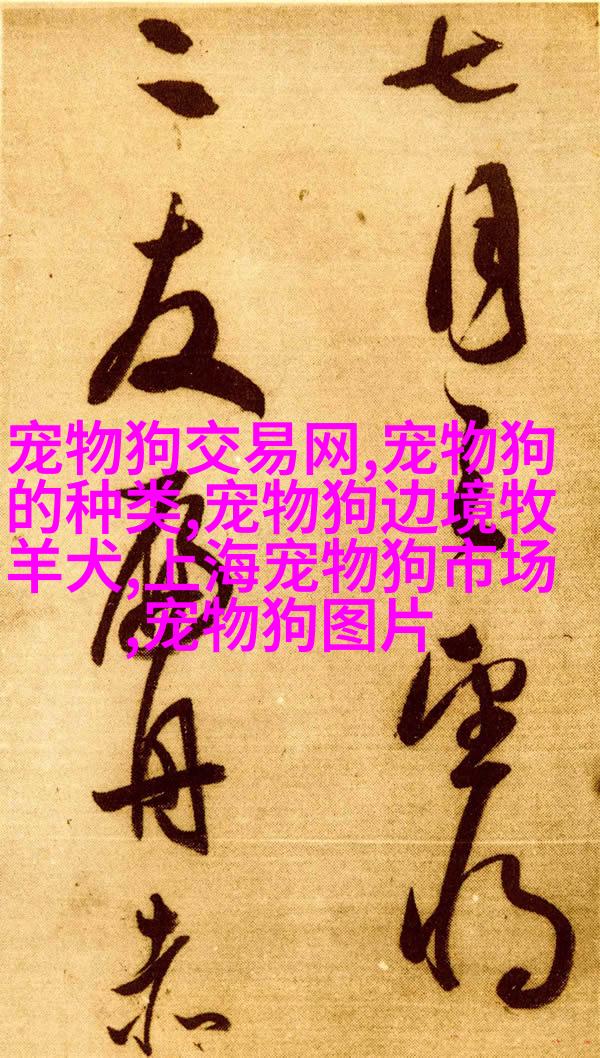 七月望将
二友舟赤
宠物狗交易网,宠物狗
的种类,宠物狗边境牧
羊犬,上海宠物狗市场
,宠物狗图片